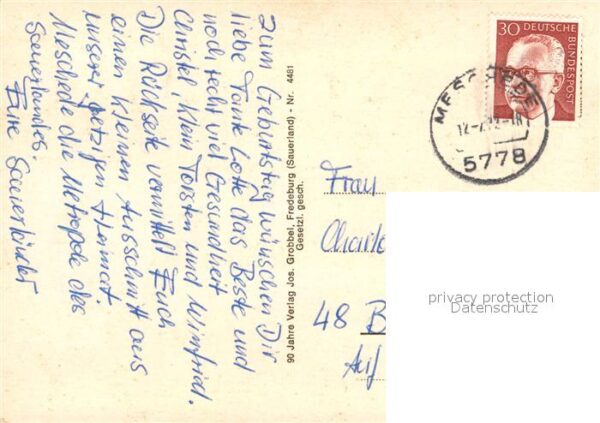 Zum Geburtstag wünschen Dir
liebe Tante Lotte das Beste und
noch recht viel Gesundheit
Christel, Klein Torsten und Winfrid.
Die Rückseite vermittelt Euch
einen kleinen Ausschnitt aus
unserer jetzigen Heimat
Meschede die Metropole des
Sauerlandes.
Eure Sauerländer
90 Jahre Verlag Jos. Grobbel, Fredeburg (Sauerland) - Nr. 4481
Gesetzl. gesch.
30 DEUTSCHE
BUNDESPOST
MESCHEDE
5778
Frau
Charlo
48 B
Auf
privacy protection
Datenschutz